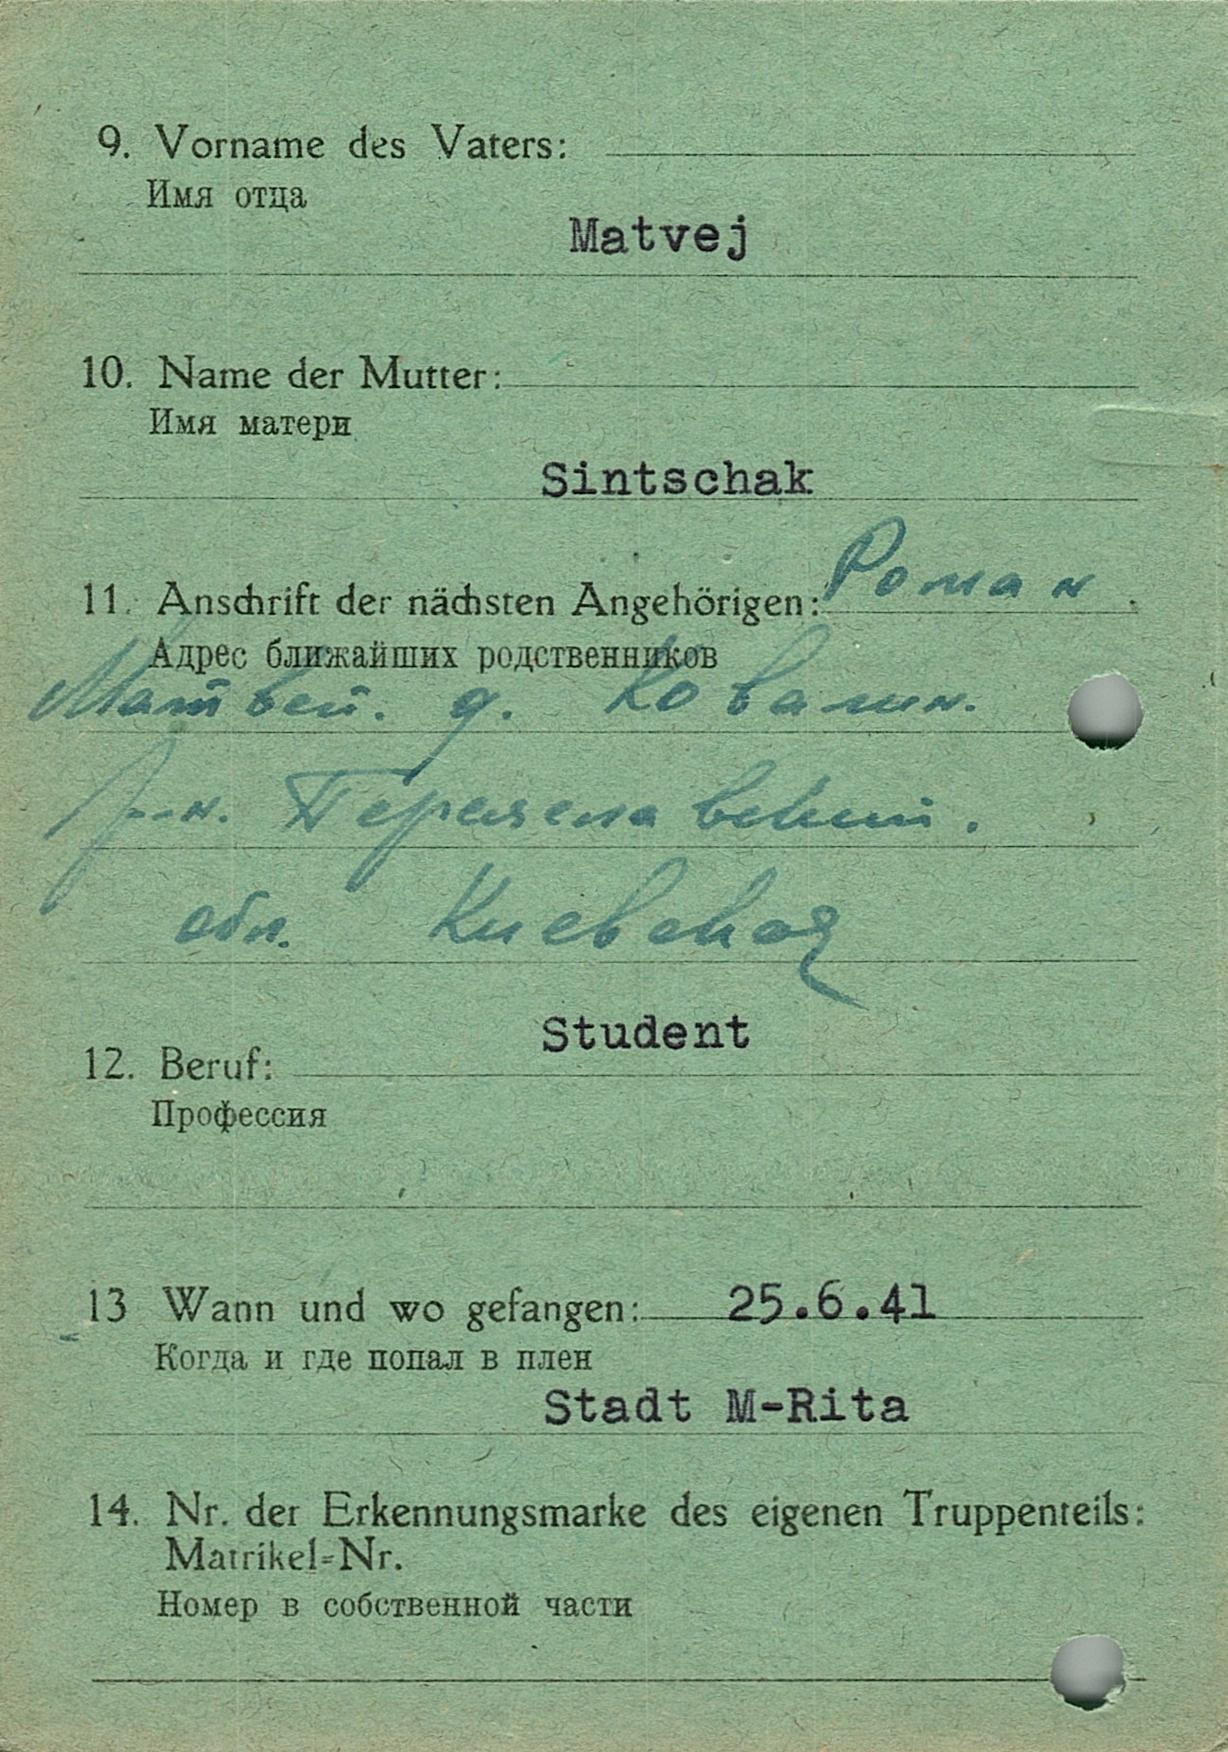 9. Vorname des Vaters:
Имя отца
Matvej
10. Name der Mutter:
Имя матери
Sintschak
11. Anschrift der nächsten Angehörigen: Роман
Адрес ближайших родственников
Матвей. д. Ковалин.
р-н. Переяславский.
обл. Киевская
Student
12. Beruf:
Профессия
13 Wann und wo gefangen: 25.6.41
Когда и где попал в плен
Stadt M-Rita
14. Nr. der Erkennungsmarke des eigenen Truppenteils:
Matrikel=Nr.
Номер в собственной части